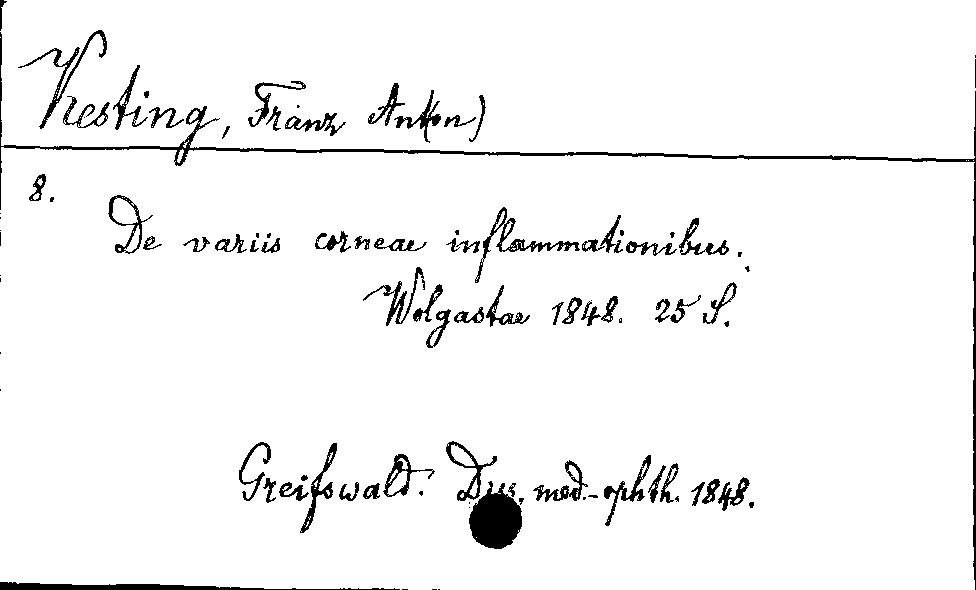 Kesting, Franz Ant(on)
8.
De variis corneae inflammationibus.
Wolgastae 1848. 25 S.
Greifswald. Diss. med.-ophth. 1848.